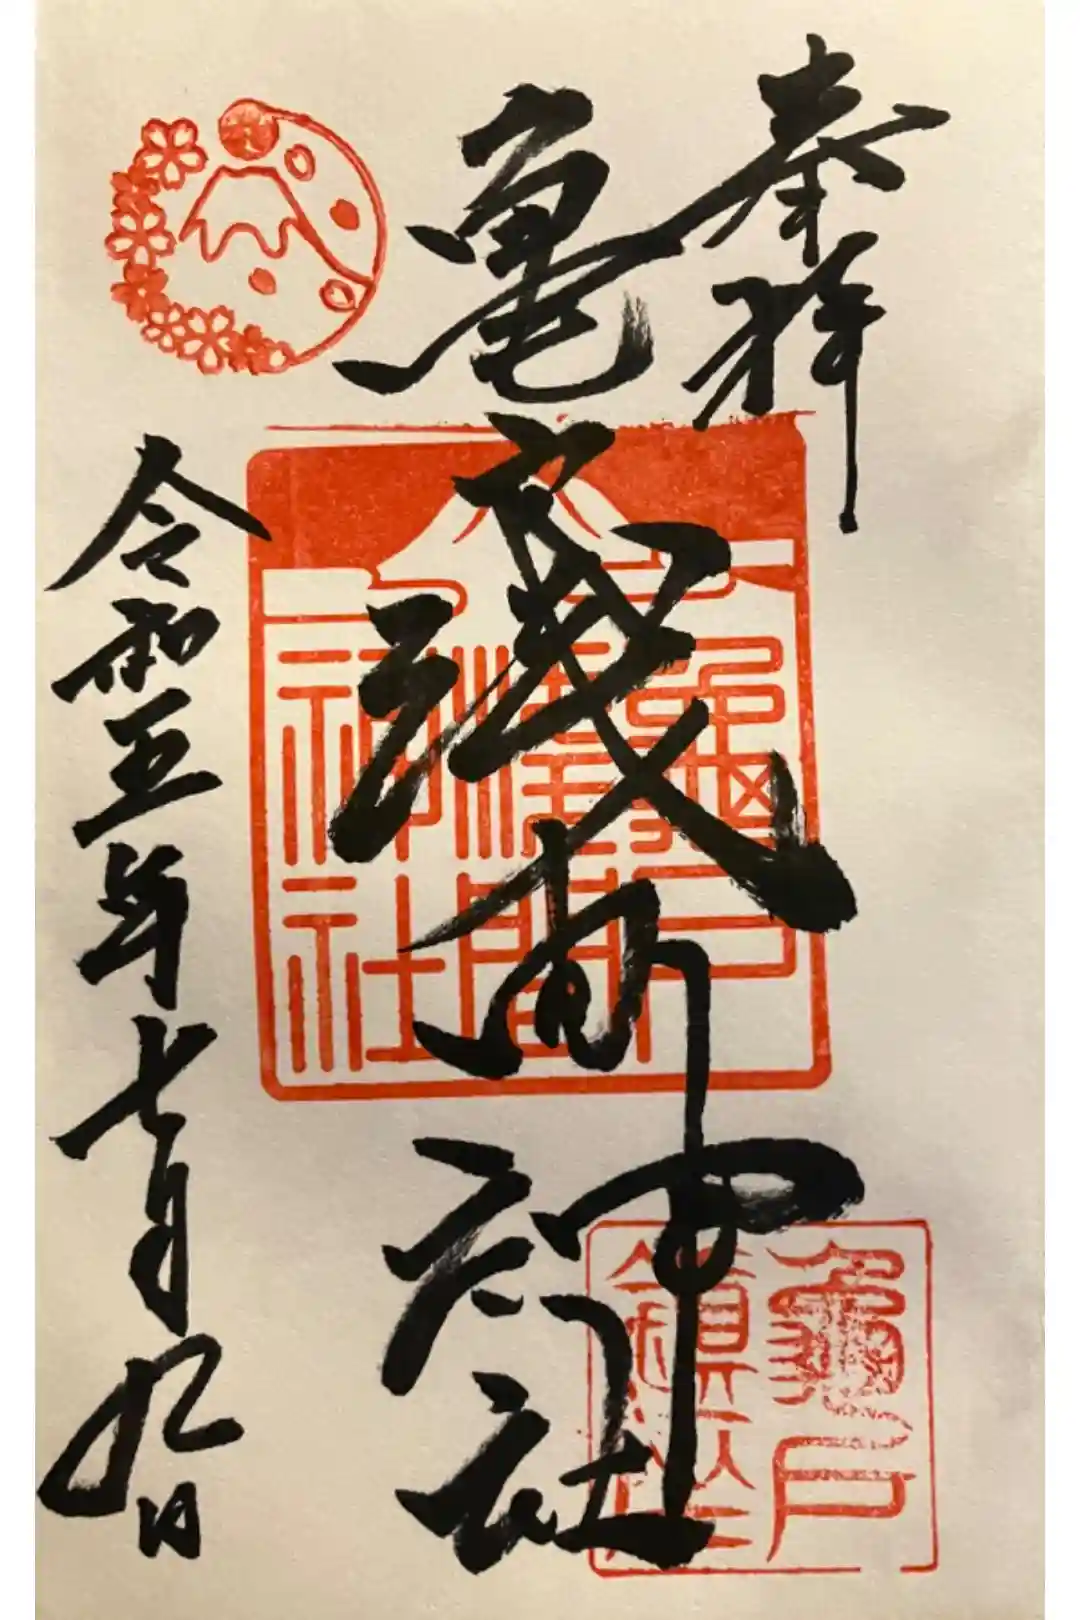 奉拝
亀戸浅間神社
令和五年七月九日
龜戸
淺間
神社
龜戸
鎮座